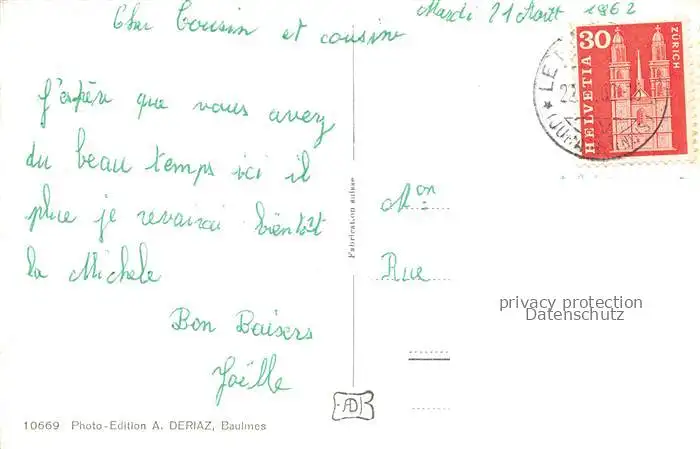 Mardi 21 Août 1962
Cher Cousin et cousine
J'espère que vous avez
du beau temps ici il
pleue je revairai bientôt
la Michele
Bon Baisers
Joëlle
Mon
Rue
Fabrication suisse
30
HELVETIA
ZÜRICH
privacy protection
Datenschutz
10669 Photo-Edition A. DERIAZ, Baulmes